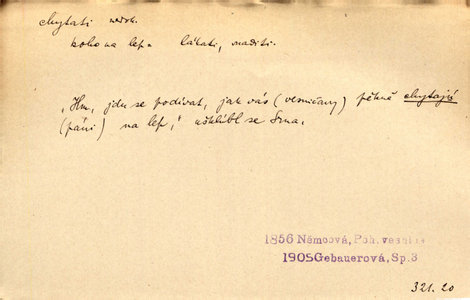 chytati nedok.
koho na lep = lákati, vnaditi.
„Hm, jdu se podívat, jak vás (vesničany) pěkně chytají
(páni) na lep," ušklíbl se Srna.
1856 Němcová, Poh. vesnice
1905 Gebauerová, Sp.3
321.20